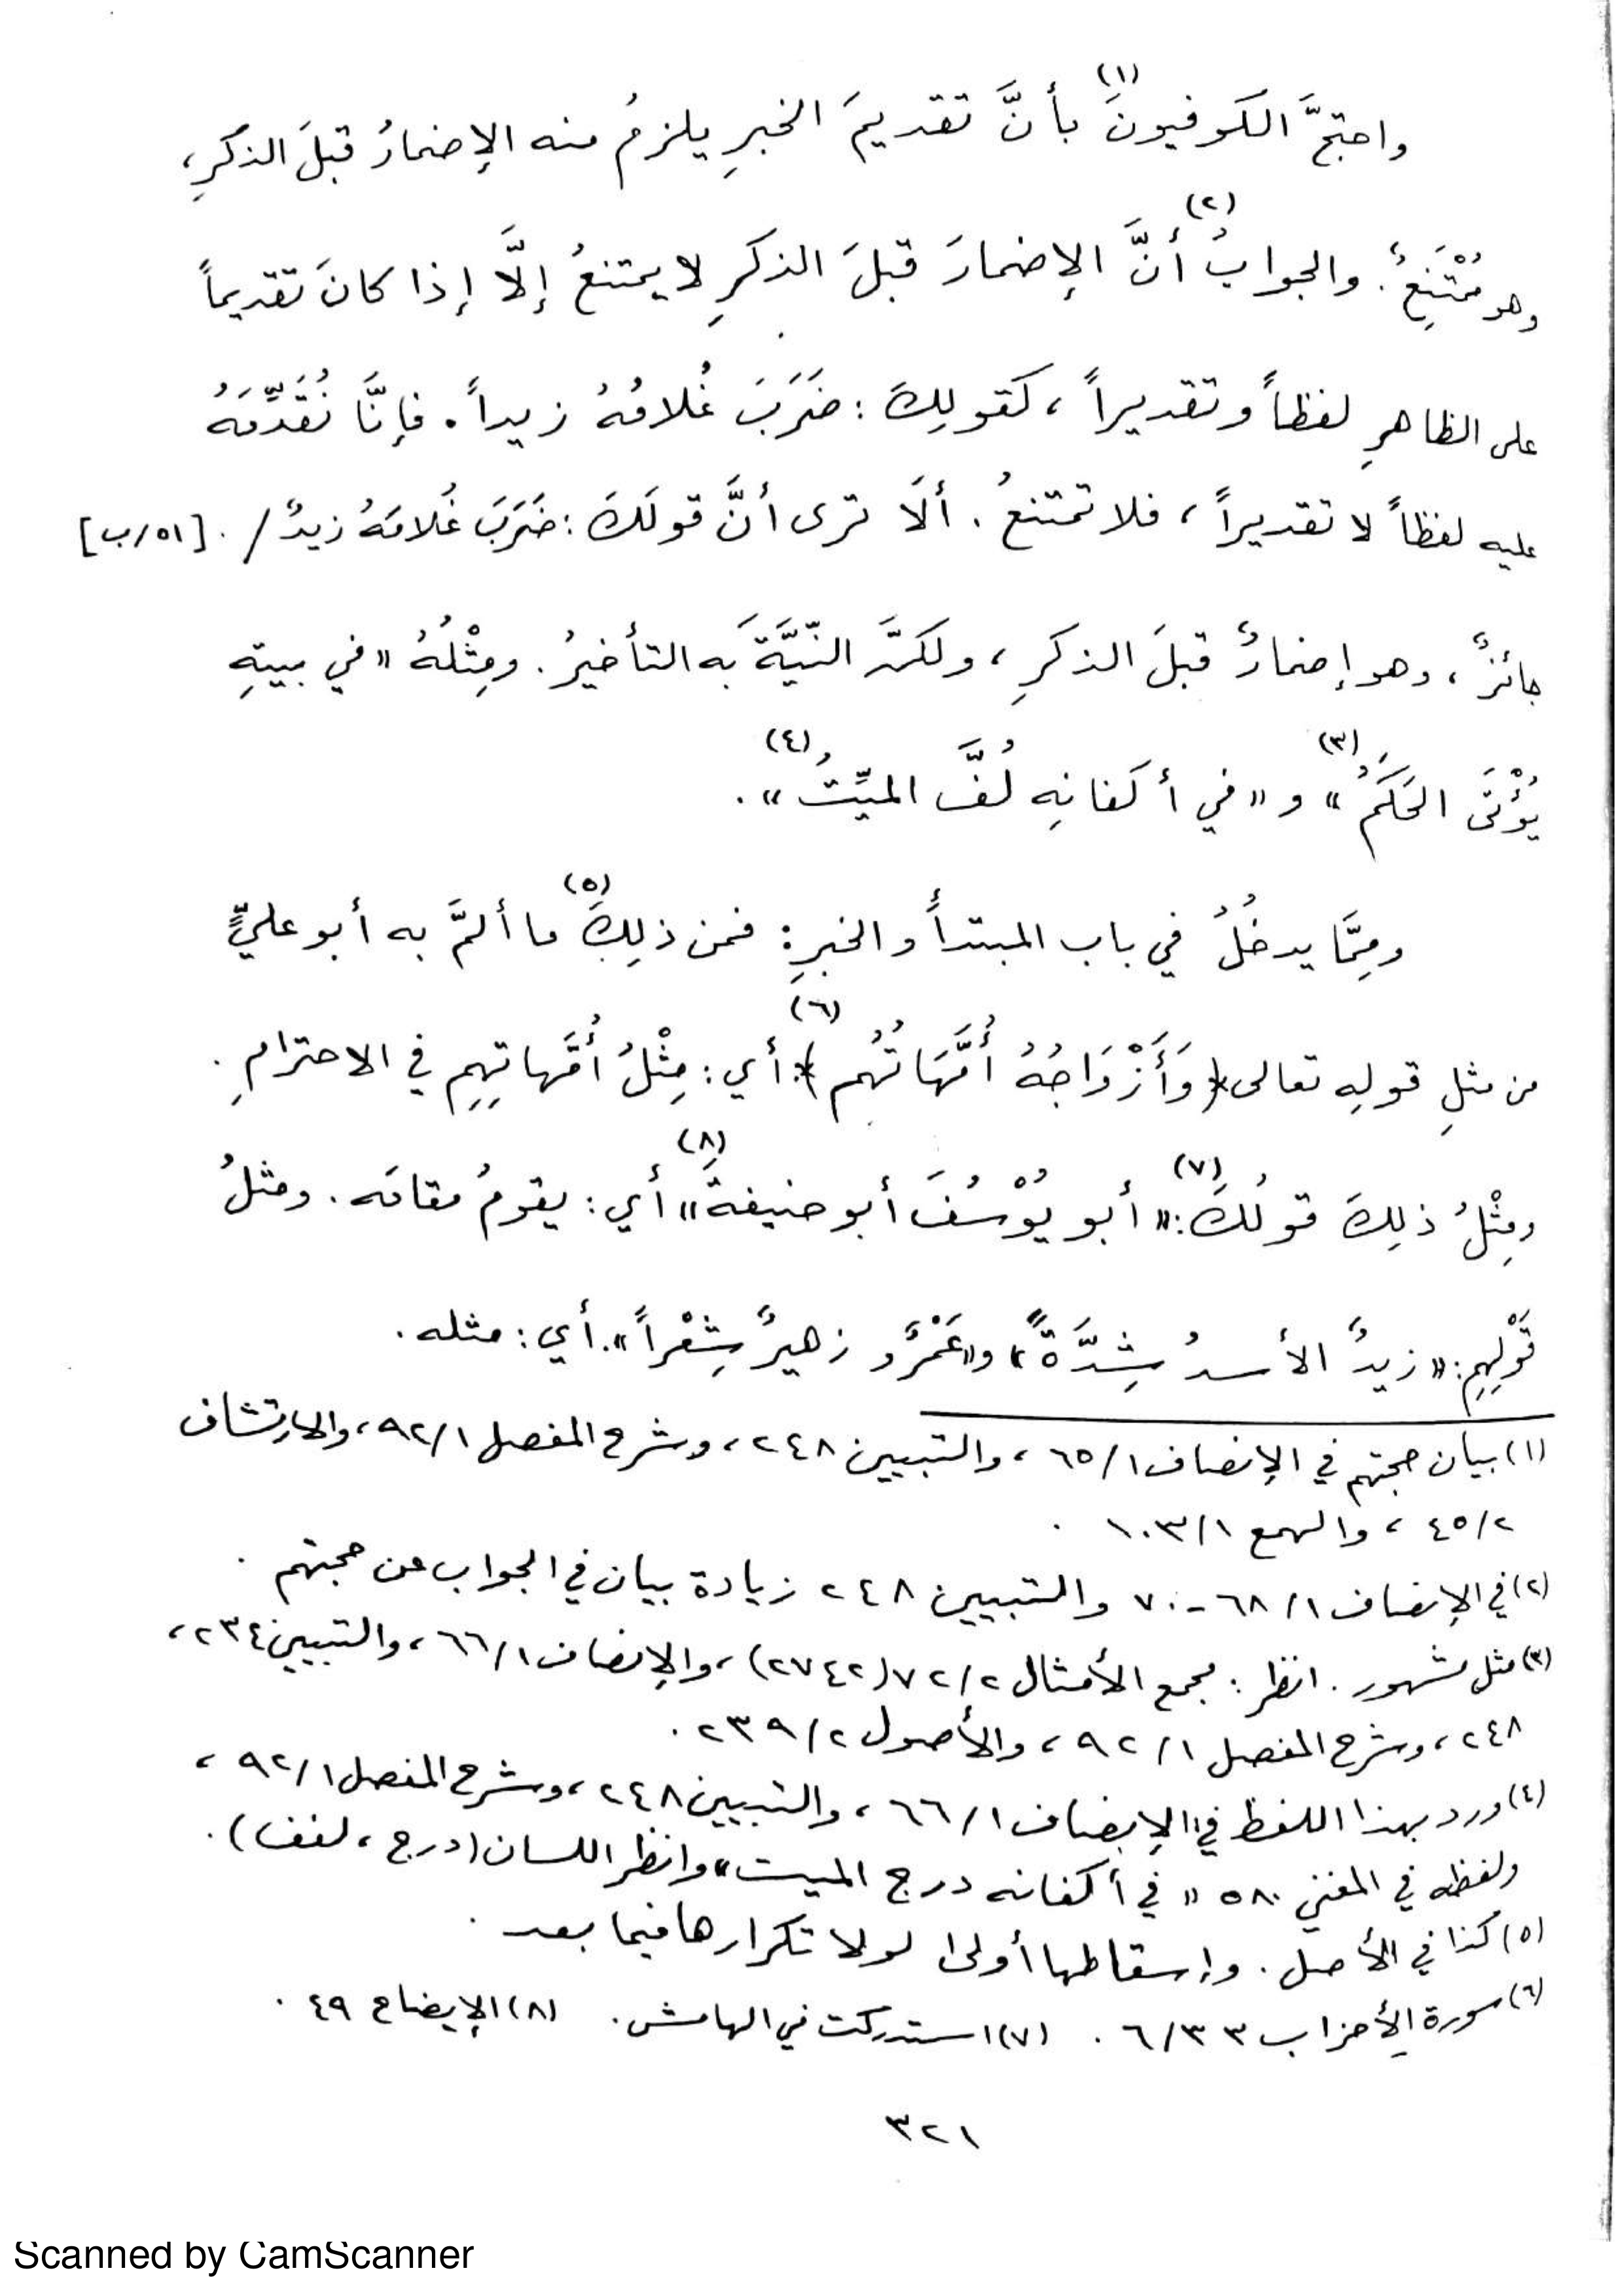 واحتجَّ الكوفيونَ(١) بأنَّ تقديمَ الخبرِ يلزمُ منه الإضمارُ قبلَ الذكرِ،
وهو مُمْتَنِعٌ. والجوابُ(٢) أنَّ الإضمارَ قبلَ الذكرِ لا يمتنعُ إلَّا إذا كانَ تقديماً
على الظاهرِ لفظاً وتقديراً، كقولِكَ: ضَرَبَ غُلامُهُ زيداً. فإنَّا نُقَدِّمَهُ
عليه لفظاً لا تقديراً، فلا تمتنعُ. ألَا ترى أنَّ قولَكَ: ضَرَبَ غُلامَهُ زيدٌ/. [٥١/ب]
جائزٌ، وهو إضمارٌ قبلَ الذكرِ، ولكنَّ النّيَّةَ به التأخيرُ. ومِثْلُهُ «في بيتِهِ
يُؤْتَى الحَكَمُ»(٣) و «في أكفانِهِ لُفَّ الميِّتُ»(٤).
ومِمَّا يدخُلُ في باب المبتدأ والخبرِ: فمن ذلِكَ(٥) ما ألمَّ به أبو عليٍّ
من مثلِ قولِهِ تعالى ﴿وَأَزْوَاجُهُ أُمَّهَاتُهُم﴾(٦) أي: مِثْلُ أُمَّهاتِهِم في الاحترامِ.
ومِثْلُ ذلِكَ قولُكَ(٧): «أبو يُوْسُفَ أبو حنيفةَ»(٨) أي: يقومُ مقامَه. ومثلُ
قَوْلِهِم: «زيدٌ الأسدُ شِدَّةً» و«عَمْرٌو زهيرٌ شِعْراً». أي: مثله.
(١) بيان حجتهم في الإنصاف ٦٥/١، والتبيين ٢٤٨، وشرح المفصل ٩٢/١، والارتشاف
٤٥/٢، والهمع ١٠٣/١.
(٢) في الإنصاف ٦٨/١-٧٠ والتبيين ٢٤٨ زيادة بيان في الجواب عن حجتهم.
(٣) مثل مشهور. انظر: مجمع الأمثال ٧٢/٢ (٢٧٤٢)، والإنصاف ٦٦/١، والتبيين ٢٣٤،
٢٤٨، وشرح المفصل ٩٢/١، والأصول ٢٣٩/٢.
(٤) ورد بهذا اللفظ في الإنصاف ٦٦/١، والتبيين ٢٤٨، وشرح المفصل ٩٢/١،
ولفظه في المغني ٥٨٠ «في أكفانه درج الميت» وانظر اللسان (درج، لفف).
(٥) كذا في الأصل. وإسقاطها أولى لولا تكرارها فيما بعد.
(٦) سورة الأحزاب ٦/٣٣. (٧) استدركت في الهامش. (٨) الإيضاح ٤٩.
٣٢١
Scanned by CamScanner